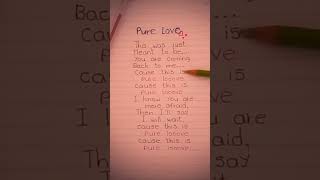 Pure Love
This was just
Meant to be..
You are coming
Back to me...
Cause this is
Pure looove
cause this is
Pure looove
I know you are
more afraid,
Then I'll say
I will wait,
cause this is
Pure looove
cause this is
Pure looove
is
is
u are
aid,
say